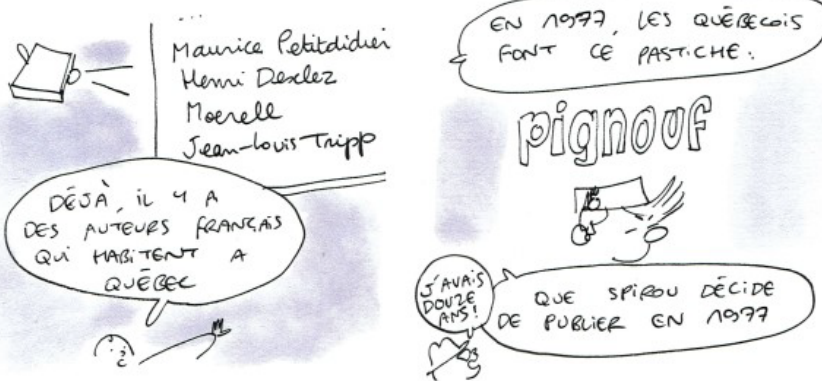 ...
Maurice Petitdidier
Henri Desclez
Moerell
Jean-Louis Tripp
DÉJÀ, IL Y A
DES AUTEURS FRANÇAIS
QUI HABITENT A
QUÉBEC
EN 1977, LES QUÉBECOIS
FONT CE PASTICHE :
pignouf
J'AVAIS
DOUZE
ANS !
QUE SPIROU DÉCIDE
DE PUBLIER EN 1977